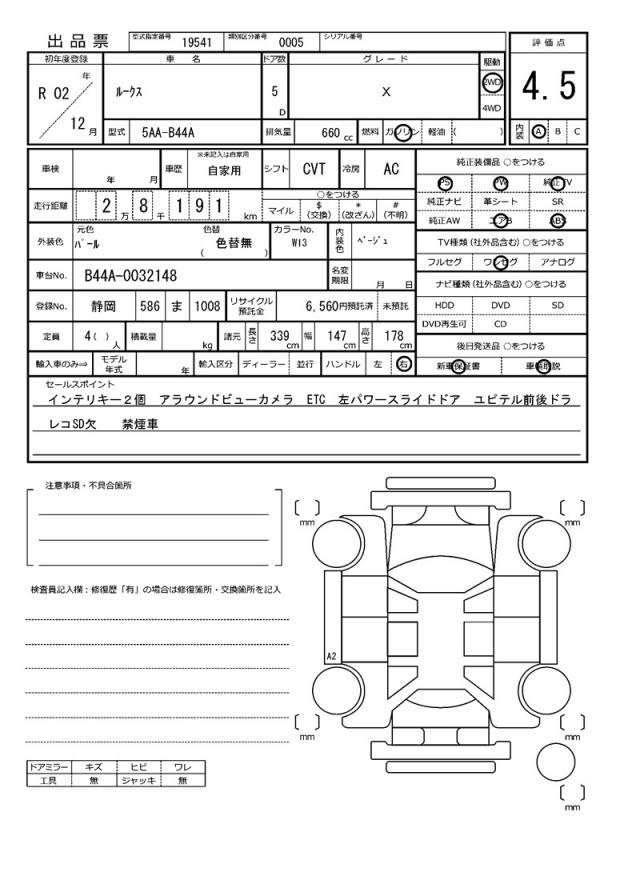 出品票 型式指定番号 19541 類別区分番号 0005 シリアル番号
評価点
初年度登録 車名 ドア数 グレード 駆動
R 02 年 ルークス 5 D X 2WD 4.5
4WD
12 月 型式 5AA-B44A 排気量 660 cc 燃料 ガソリン 軽油 ( ) 内装 A B C
車検 年 月 車歴 ※未記入は自家用 自家用 シフト CVT 冷房 AC 純正装備品 ○をつける
PS PW 純正TV
走行距離 2 万 8 千 1 9 1 km ○をつける 純正ナビ 革シート SR
マイル $ (交換) * (改ざん) # (不明) 純正AW エアB ABS
外装色 元色 パール 色替 色替無 ( ) カラーNo. W13 内装色 ベージュ TV種類(社外品含む)○をつける
フルセグ ワンセグ アナログ
車台No. B44A-0032148 名変期限 月 日 ナビ種類(社外品含む)○をつける
登録No. 静岡 586 ま 1008 リサイクル預託金 6,560円預託済 未預託 HDD DVD SD
DVD再生可 CD
定員 4( )人 積載量 kg 諸元 長さ 339 cm 幅 147 cm 高さ 178 cm 後日発送品 ○をつける
輸入車のみ⇒ モデル年式 年 輸入区分 ディーラー 並行 ハンドル 左 右 新車保証書 車輌取説
セールスポイント
インテリキー2個 アラウンドビューカメラ ETC 左パワースライドドア ユピテル前後ドラ
レコSD欠 禁煙車
注意事項・不具合箇所
mm mm
検査員記入欄:修復歴「有」の場合は修復箇所・交換箇所を記入
A2
mm mm
ドアミラー キズ ヒビ ワレ
工具 無 ジャッキ 無
mm